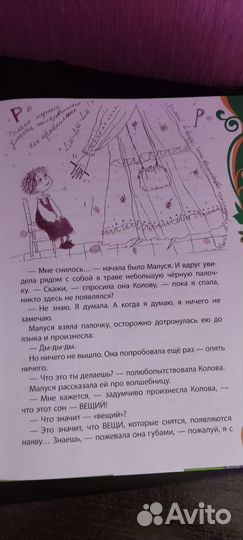 Р
Р
— Мне снилось... — начала было Малуся. И вдруг уви-
дела рядом с собой в траве небольшую чёрную палоч-
ку. — Скажи, — спросила она Колову, — пока я спала,
никто здесь не появлялся?
— Не знаю. Я думала. А когда я думаю, я ничего не
замечаю.
Малуся взяла палочку, осторожно дотронулась ею до
языка и произнесла:
— Ды-ды-ды.
Но ничего не вышло. Она попробовала ещё раз — опять
ничего.
— Что это ты делаешь? — полюбопытствовала Колова.
Малуся рассказала ей про волшебницу.
— Мне кажется, — задумчиво произнесла Колова, —
что этот сон — ВЕЩИЙ!
— Что значит — «вещий»?
— Это значит, что ВЕЩИ, которые снятся, появляются
наяву... Знаешь, — пожевала она губами, — пожалуй, я с
Avito